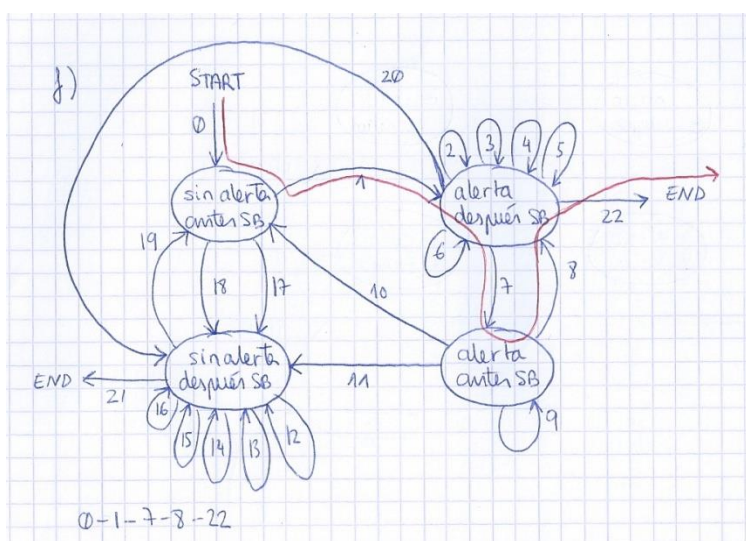 f)
START
20
0
2 3 4 5
sin alerta
antes SB
1
alerta
después SB
END
22
19
18
17
6
7
8
10
sin alerta
después SB
alerta
antes SB
END
21
11
16
15
14
13
12
9
0-1-7-8-22